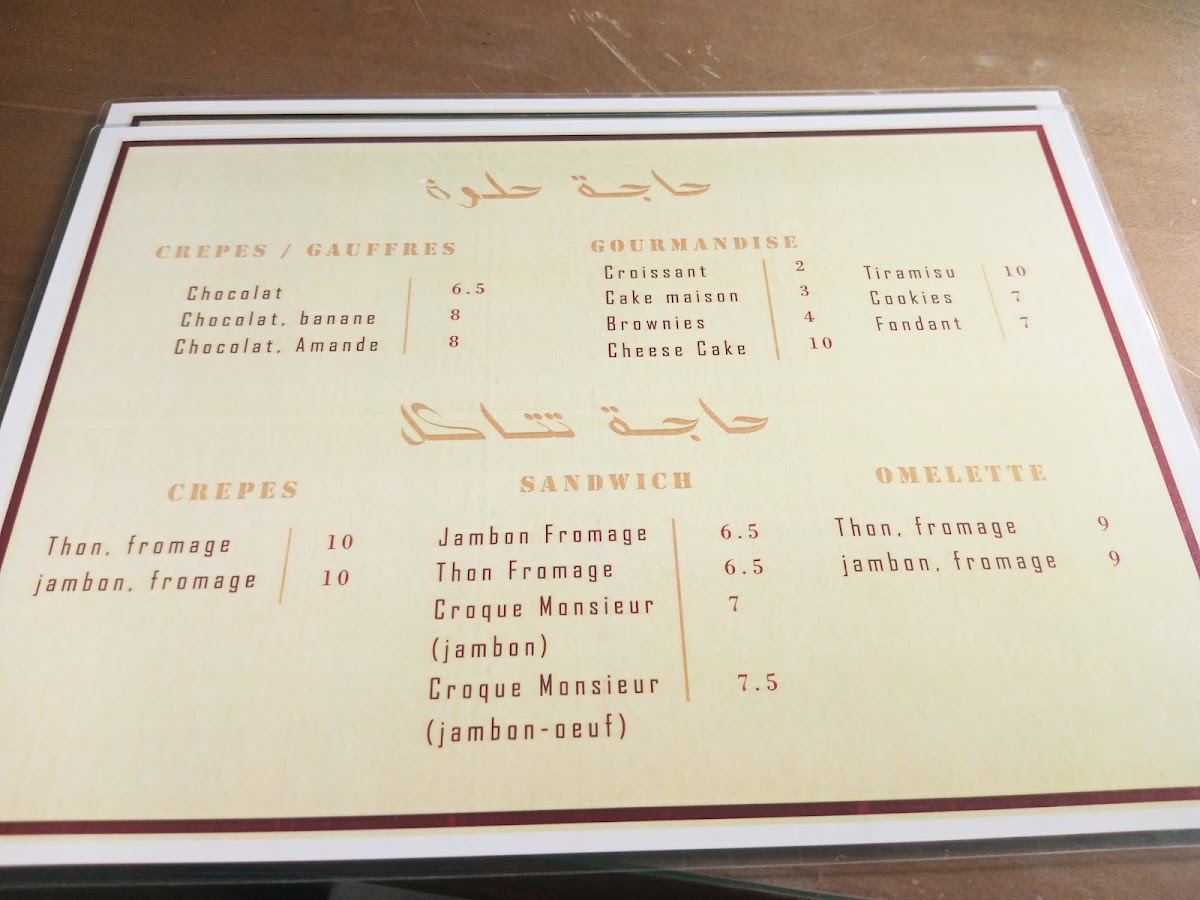 حاجة حلوة
CREPES / GAUFFRES
Chocolat 6.5
Chocolat, banane 8
Chocolat, Amande 8
GOURMANDISE
Croissant 2
Cake maison 3
Brownies 4
Cheese Cake 10
Tiramisu 10
Cookies 7
Fondant 7
حاجة تتاكل
CREPES
Thon, fromage 10
jambon, fromage 10
SANDWICH
Jambon Fromage 6.5
Thon Fromage 6.5
Croque Monsieur 7
(jambon)
Croque Monsieur 7.5
(jambon-oeuf)
OMELETTE
Thon, fromage 9
jambon, fromage 9